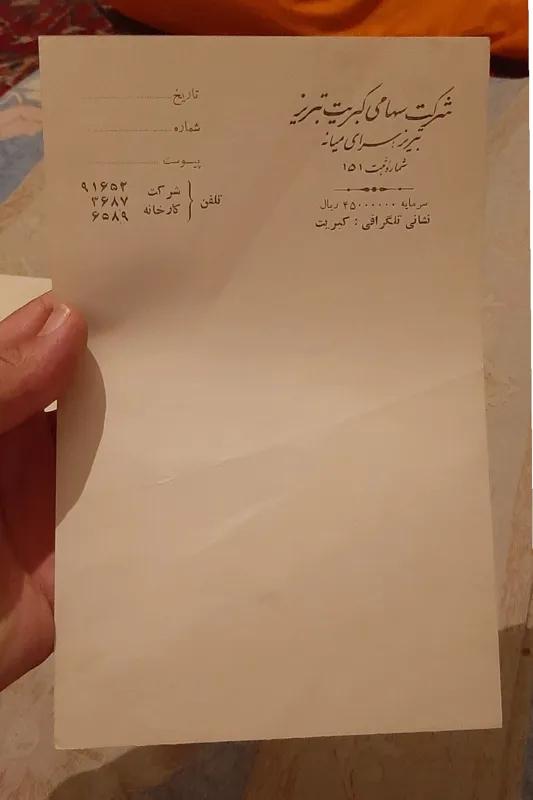 شرکت سهامی کبریت تبریز
تبریز، سرای میانه
شماره ثبت ۱۵۱
سرمایه ۴۵۰۰۰۰۰۰ ریال
نشانی تلگرافی : کبریت
تاریخ
شماره
پیوست
تلفن
شرکت ۹۱۶۵۲
۳۶۸۷
کارخانه ۶۵۸۹